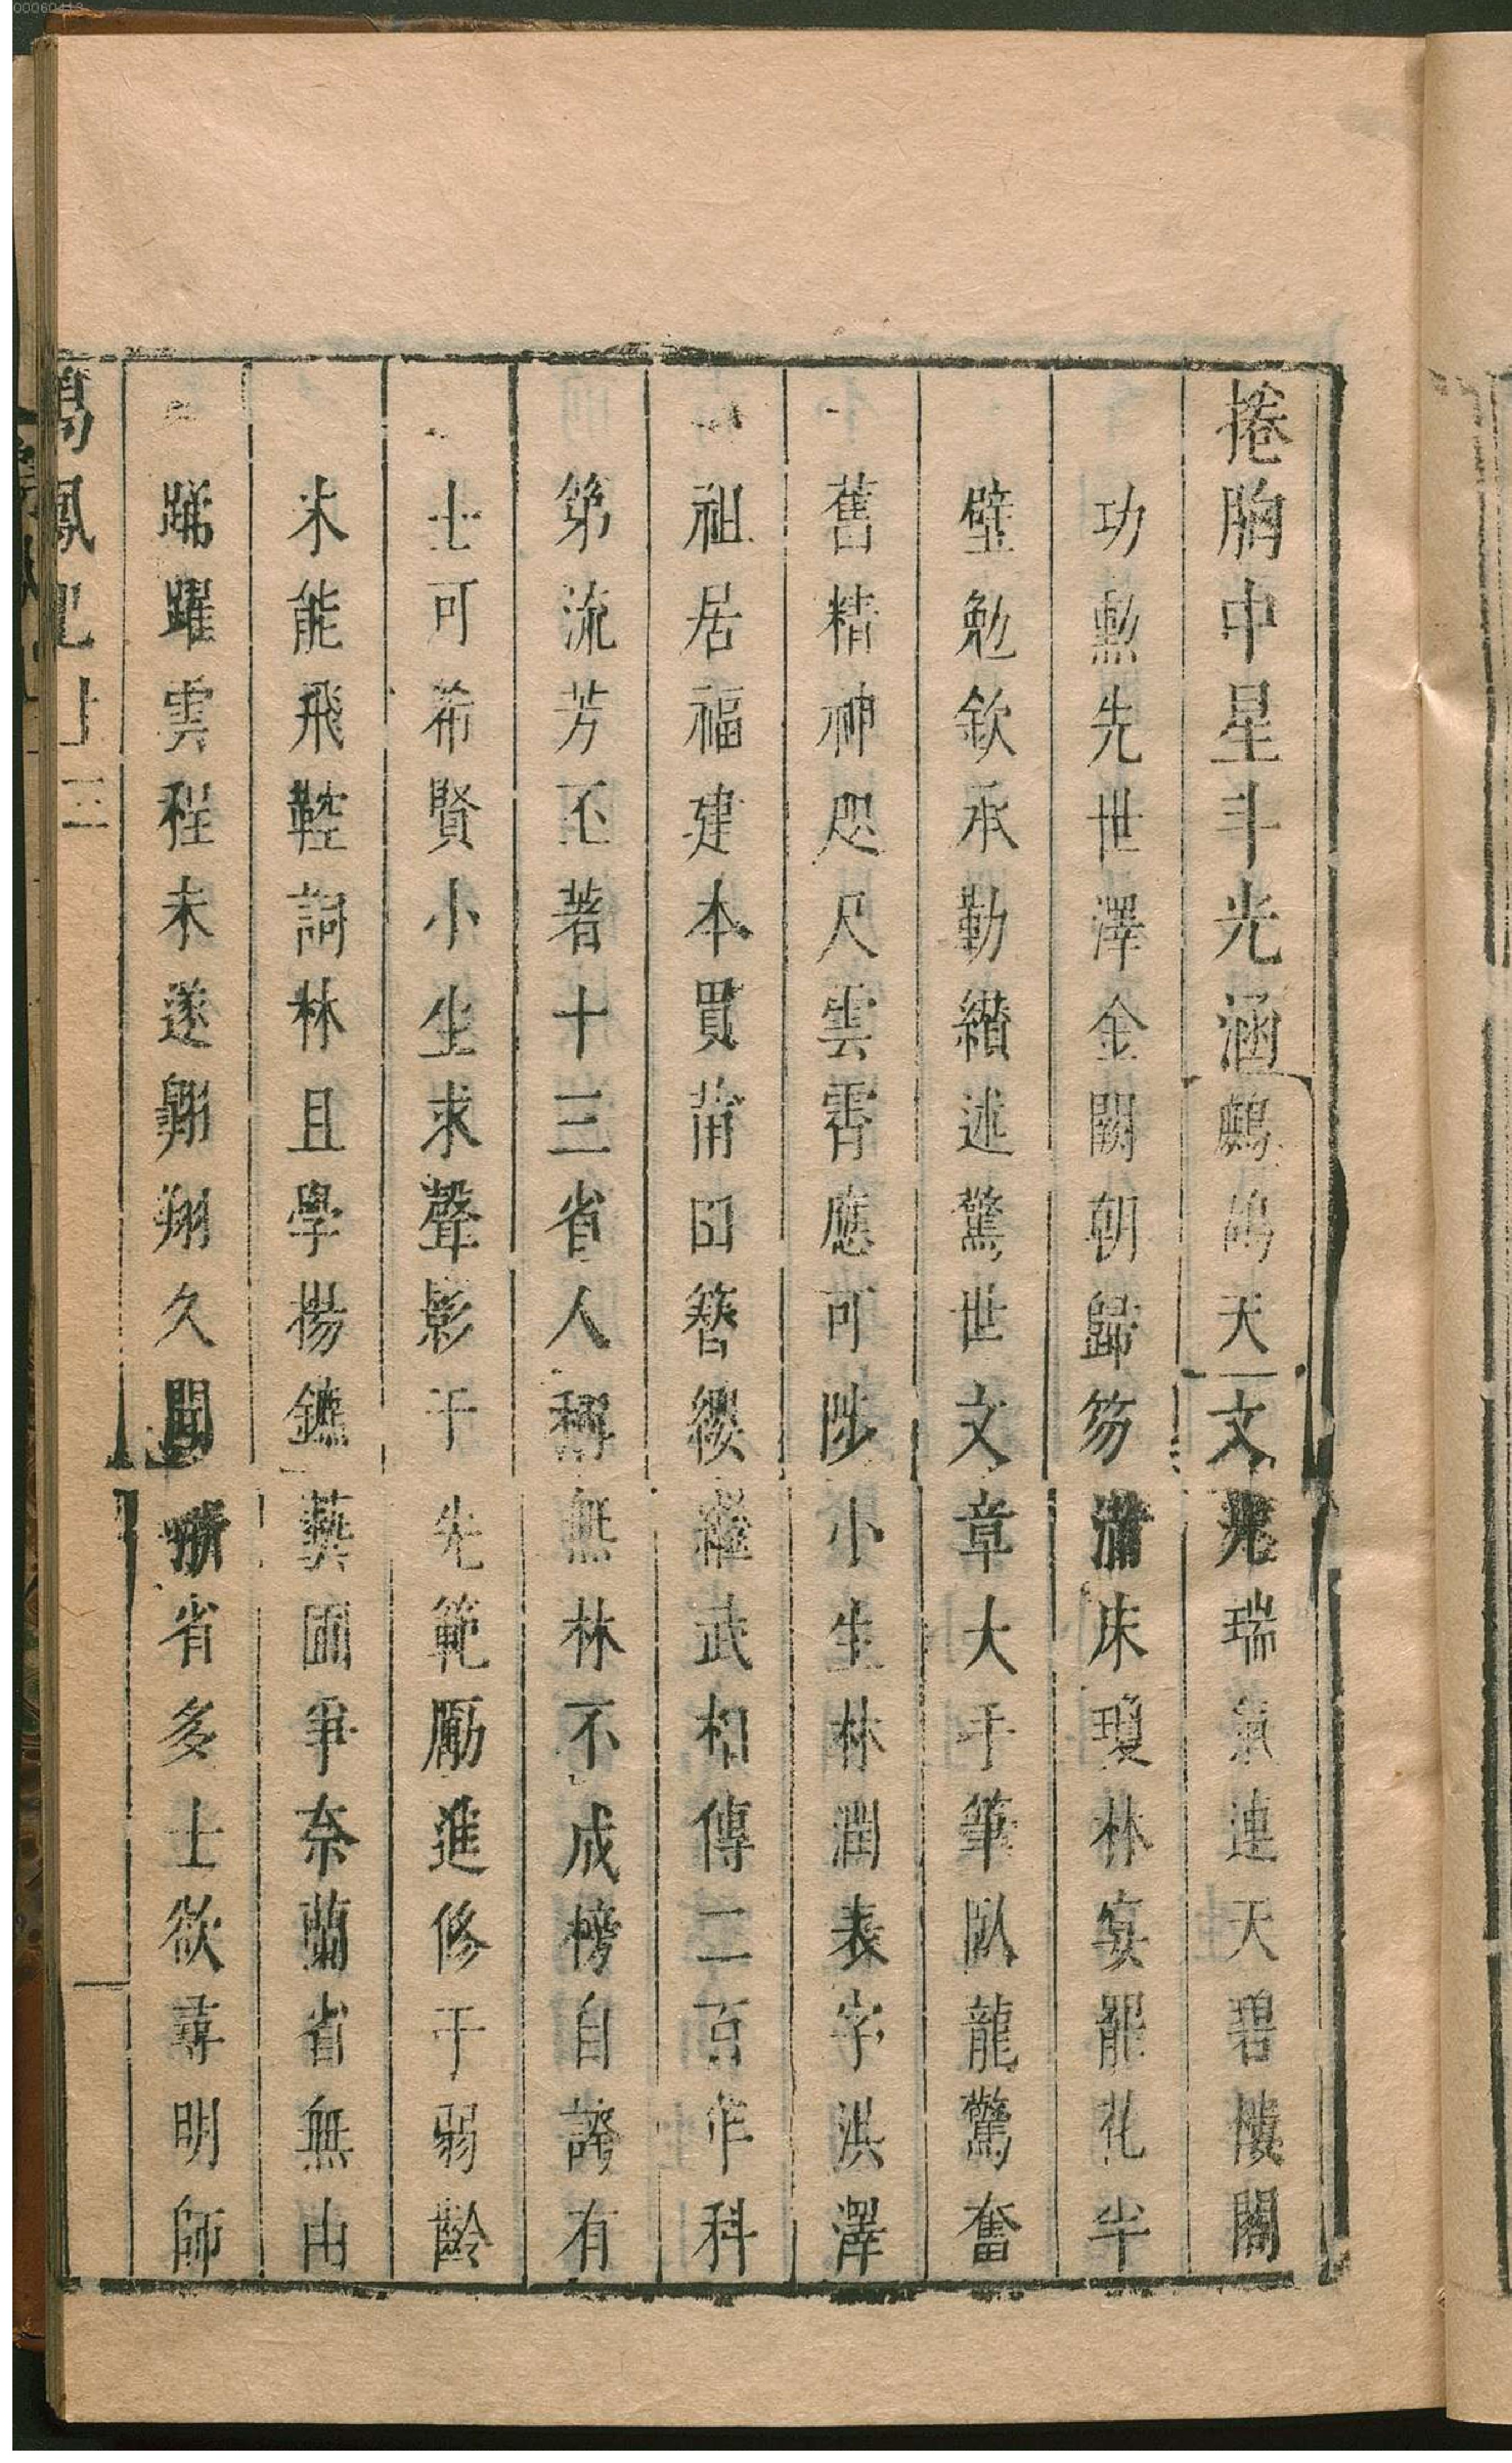 捲胸中星斗光涵鷓鴣天文光瑞氣連天碧樓閣
功勲先世澤金闕朝歸笏滿床瓊林宴罷花半
壁勉欽承勤纘述驚世文章大手筆臥龍驚奮
舊精神咫尺雲霄應可陟小生林潤表字洪澤
祖居福建本貫莆田簪纓繼武相傳二百年科
第流芳丕著十三省人稱無林不成榜自誇有
士可希賢小生求聲影于先範勵進修于弱齡
未能飛鞚詞林且學揚鑣藝圃爭奈蘭省無由
踴躍雲程未遂翺翔久聞浙省多士欲尋明師
鳳 上 三
00060413